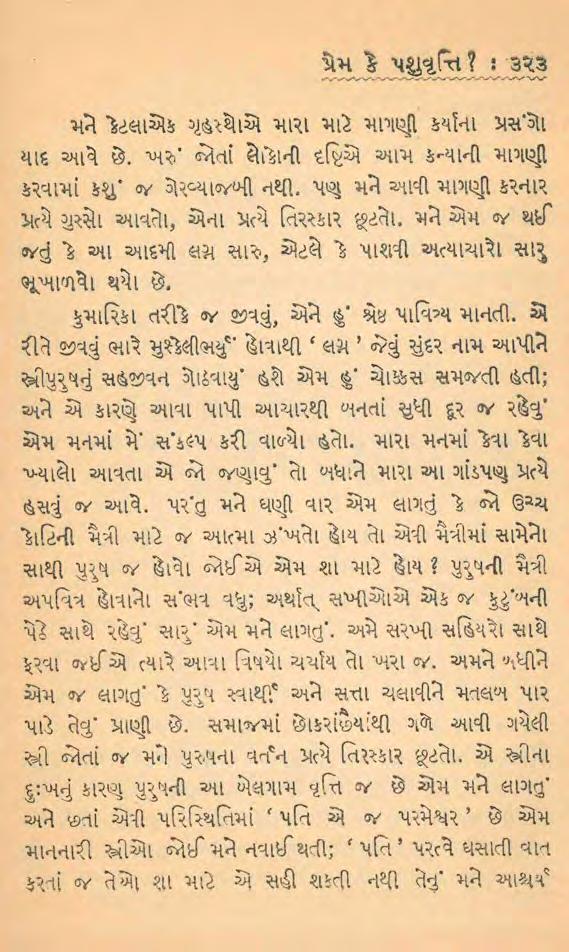 પ્રેમ કે પશુવૃત્તિ? : ૩૨૩
મને કેટલાએક ગૃહસ્થોએ મારા માટે માગણી કર્યાના પ્રસંગો
યાદ આવે છે. ખરું જોતાં લોકોની દૃષ્ટિએ આમ કન્યાની માગણી
કરવામાં કશું જ ગેરવ્યાજબી નથી. પણ મને આવી માગણી કરનાર
પ્રત્યે ગુસ્સો આવતો, એના પ્રત્યે તિરસ્કાર છૂટતો. મને એમ જ થઈ
જતું કે આ આદમી લગ્ન સારુ, એટલે કે પાશવી અત્યાચારો સારુ
ભૂખાળવો થયો છે.
કુમારિકા તરીકે જ જીવવું, એને હું શ્રેષ્ઠ પાવિત્ર્ય માનતી. એ
રીતે જીવવું ભારે મુશ્કેલીભર્યું હોવાથી ‘ લગ્ન ’ જેવું સુંદર નામ આપીને
સ્ત્રીપુરુષનું સહજીવન ગોઠવાયું હશે એમ હું ચોક્કસ સમજતી હતી;
અને એ કારણે આવા પાપી આચારથી બનતાં સુધી દૂર જ રહેવું
એમ મનમાં મેં સંકલ્પ કરી વાળ્યો હતો. મારા મનમાં કેવા કેવા
ખ્યાલો આવતા એ જો જણાવું તો બધાને મારા આ ગાંડપણ પ્રત્યે
હસવું જ આવે. પરંતુ મને ઘણી વાર એમ લાગતું કે જો ઉચ્ચ
કોટિની મૈત્રી માટે જ આત્મા ઝંખતો હોય તો એવી મૈત્રીમાં સામેનો
સાથી પુરુષ જ હોવો જોઈએ એમ શા માટે હોય? પુરુષની મૈત્રી
અપવિત્ર હોવાનો સંભવ વધુ; અર્થાત્ સખીઓએ એક જ કુટુંબની
પેઠે સાથે રહેવું સારું એમ મને લાગતું. અમે સરખી સહિયરો સાથે
ફરવા જઈએ ત્યારે આવા વિષયો ચર્ચાય તો ખરા જ. અમને બધીને
એમ જ લાગતું કે પુરુષ સ્વાર્થી અને સત્તા ચલાવીને મતલબ પાર
પાડે તેવું પ્રાણી છે. સમાજમાં છોકરાંછૈયાંથી ગળે આવી ગયેલી
સ્ત્રી જોતાં જ મને પુરુષના વર્તન પ્રત્યે તિરસ્કાર છૂટતો. એ સ્ત્રીના
દુઃખનું કારણ પુરુષની આ બેલગામ વૃત્તિ જ છે એમ મને લાગતું
અને છતાં એવી પરિસ્થિતિમાં ‘ પતિ એ જ પરમેશ્વર ’ છે એમ
માનનારી સ્ત્રીઓ જોઈ મને નવાઈ થતી; ‘ પતિ ’ પરત્વે ઘસાતી વાત
કરતાં જ તેઓ શા માટે એ સહી શકતી નથી તેનું મને આશ્ચર્ય